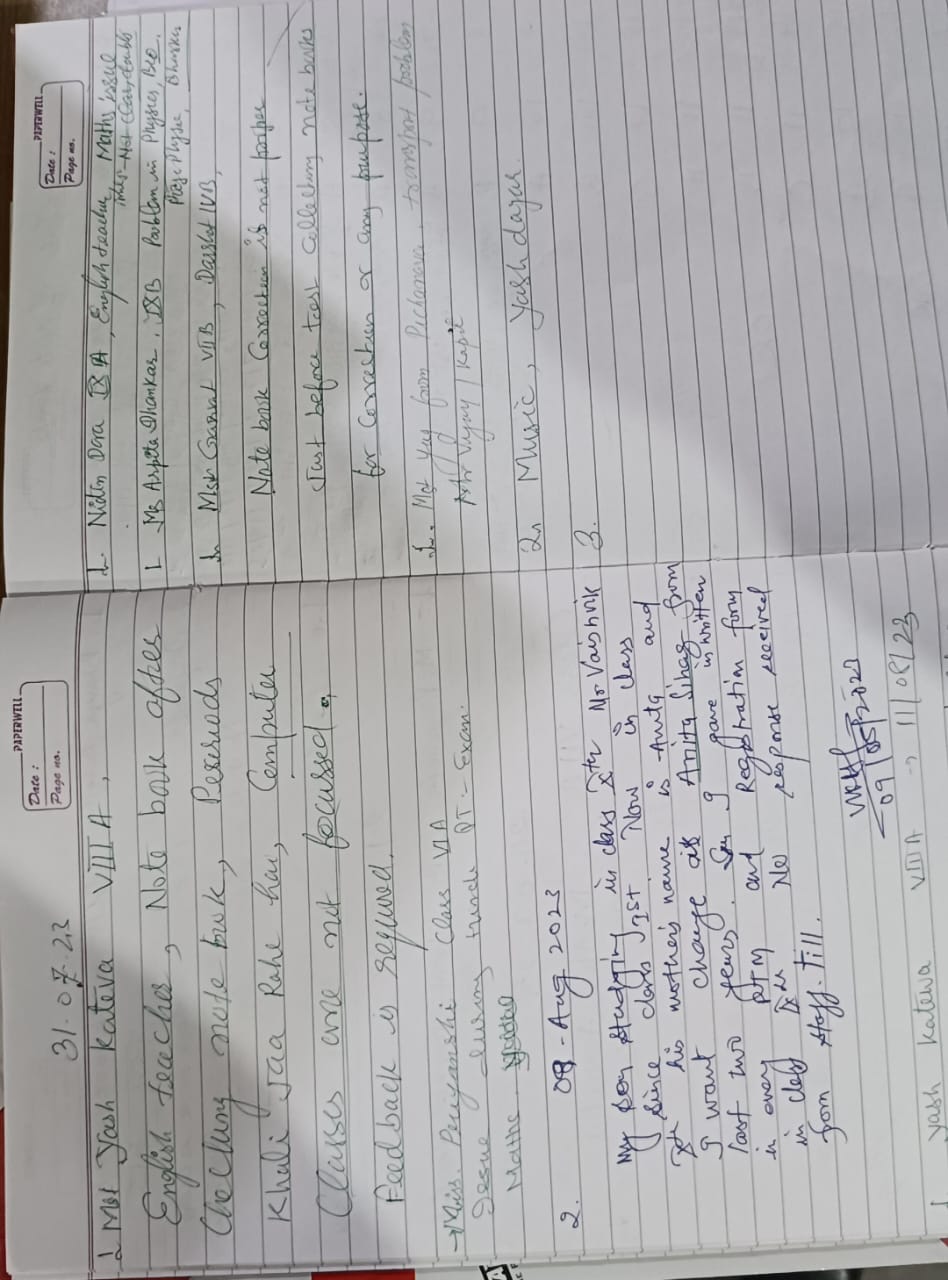 PAPERWELL
Date :
Page no.
31.07.23
1. Mst Yash Kateva VIII A,
English teacher, Note book after
Checking note book, Periods
Khali Jaa Rahe hai, Computer
Classes are not focussed.
Feedback is required.
→ Miss. Priyanshi Class VI A
Issue during tuade PT:- Exam.
Maths
2. 09 - Aug 2023
My son studying in class Xth Nr Vaishvik
since class Ist Now in class
Xth his mother's name is Anita and
I want change as Anita Sihag from
last two years. I gave in written
in every PTM and Registration form
in class IX No response received
from staff. till.
09/08/2023
1 Yash Kateva VIII A → 11/08/23
PAPERWELL
Date :
Page no.
1- Nitin Dara IX A, English teacher, Maths issue
Not Clear doubts
1 Ms Arpita Dhankar, IX B Problem in Physics, Bio.
Physic,
1. Mst Gaurat VII B, Darshit IV B,
Note book Correction is not proper
Just before test collecting note books
for correction or any purpose.
1. Mst Yug from Pichanava. transport problem
Vijay / Kapil
2. Music, Yash dagar
3.